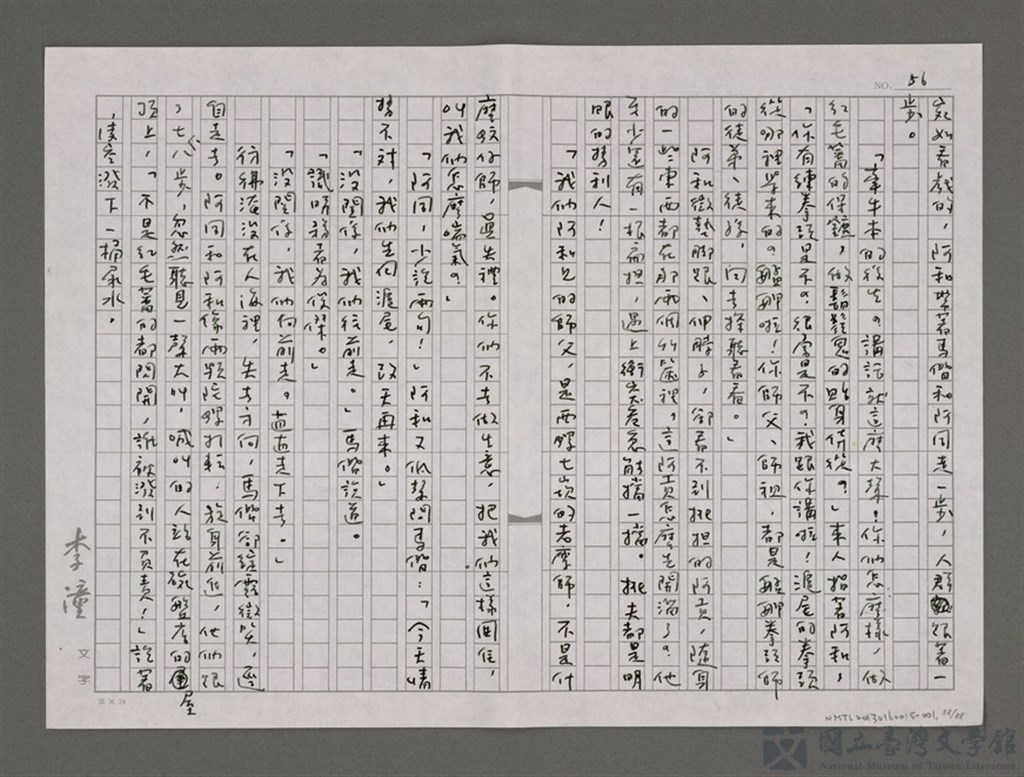 NO. 56
宛如看戲的，阿和望著馬偕和阿同走一步，人群跟著一
步。
「牽牛車的後生。講話就這麼大聲！你們怎麼樣，做
紅毛蕃的保鑣，做鬍鬚鬼的貼身侍從？」來人指著阿和，
「你有練拳頭是不？很會是不？我跟你講啦！滬尾的拳頭
從哪裡學來的？艋舺啦！你師父、師祖，都是艋舺拳頭師
的徒弟、徒孫，回去探聽看看。」
阿和微墊腳跟、伸脖子，卻看不到挑担的阿員，隨身
的一些東西都在那兩個竹籠裡，這阿員怎麼先開溜了？他
至少還有一根扁担，遇上衝突危急能擋一擋。挑夫都是明
眼的勢利人！
「我們阿和兄的師父，是西螺七崁的老師，不是什
麼蚊仔師，是失禮。你們不去做生意，把我們這樣圍住，
叫我們怎麼喘氣？」
「阿同，少說兩句！」阿和又低聲問馬偕：「今天情
勢不對，我們先回滬尾，改天再來。」
「沒關係，我們往前走。」馬偕說道。
「識時務者為俊傑。」
「沒關係，我們向前走。直直走下去。」
彷彿淹沒在人海裡，失去方向，馬偕卻綻露微笑，逕
自走去。阿同和阿和像兩顆陀螺打轉，放身前進，他們跟
了七、八步，忽然聽見一聲大叫，喊叫的人站在碗盤店的屋
頂上，「不是紅毛蕃的都閃開，誰被潑到不負責！」說著
，凌空潑下一桶尿水。
李潼
文字
25 X 24
NMTL20130160015-001
國立臺灣文學館
National Museum of Taiwan Literature